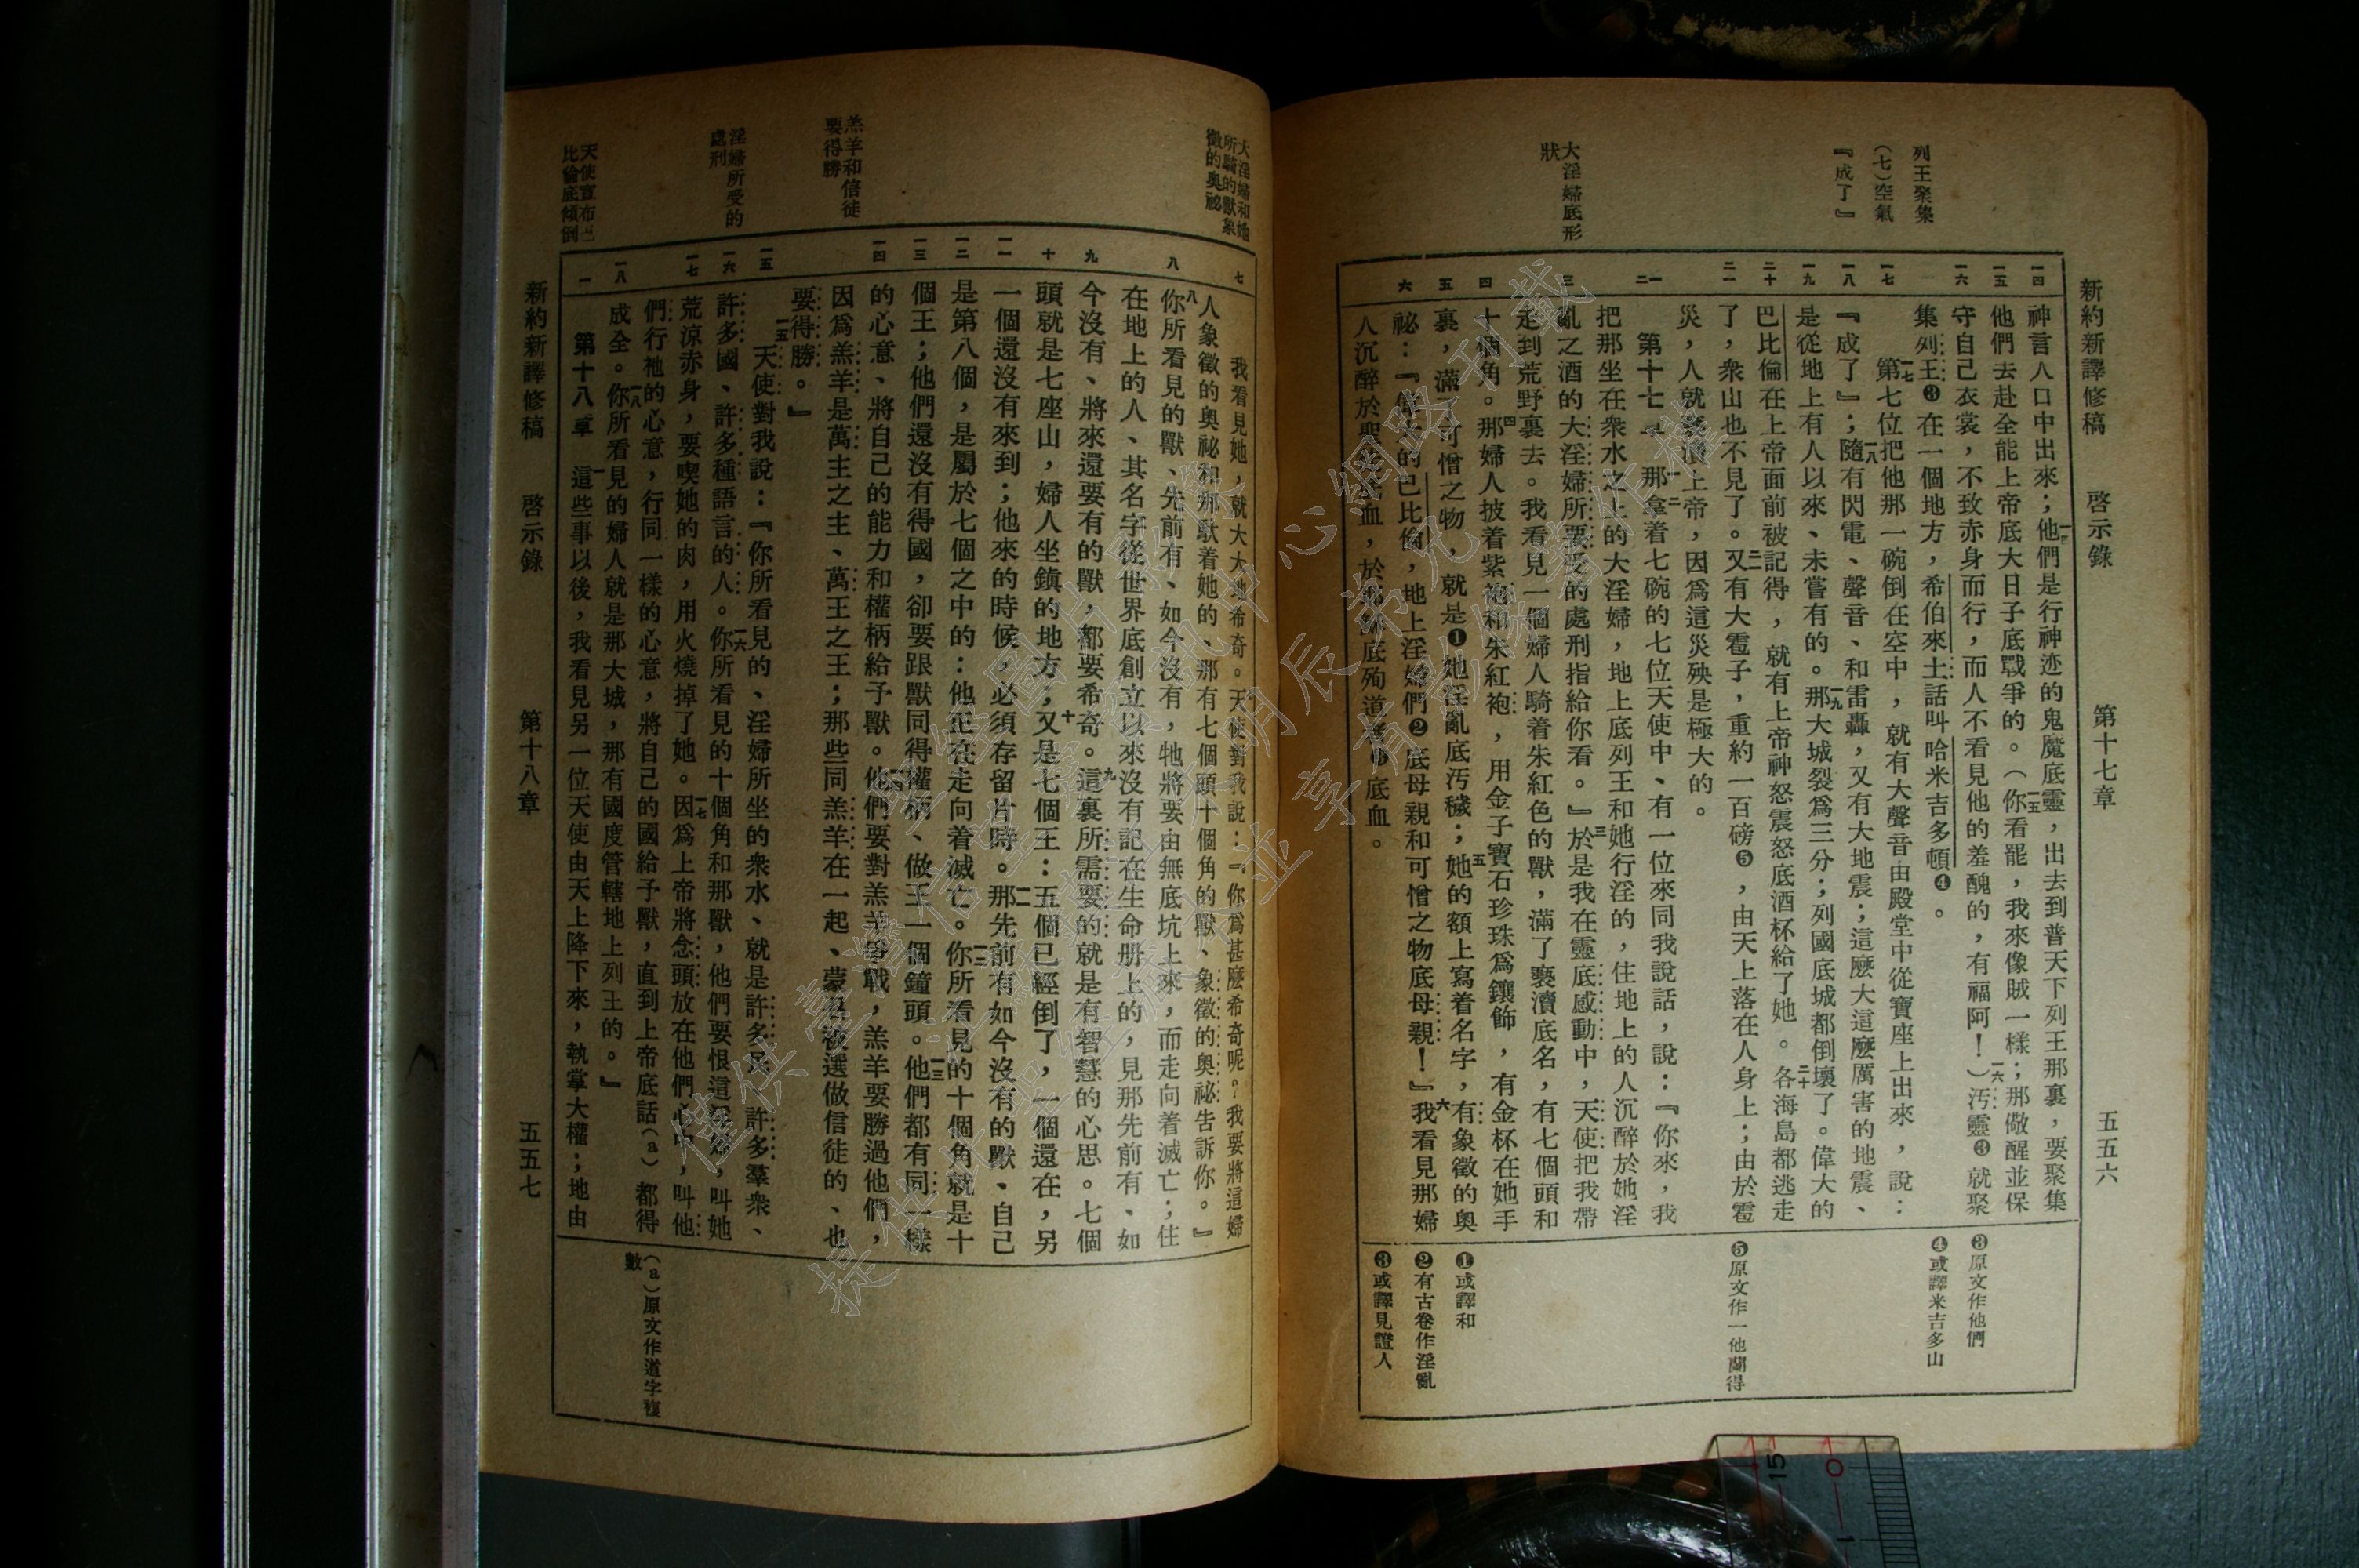 新約新譯修稿　啓示錄　第十七章　五五六
列王聚集
(七)空氣
『成了』
大淫婦底形
狀
一四
一五
一六
一七
一八
一九
二十
二一
一二
三
四
五
六
神言人口中出來；他們是行神迹的鬼魔底靈，出去到普天下列王那裏，要聚集
他們去赴全能上帝底大日子底戰爭的。(一五你看罷，我來像賊一樣；那儆醒並保
守自己衣裳，不致赤身而行，而人不看見他的羞醜的，有福阿！)一六汚靈❸就聚
集列王❸在一個地方，希伯來土話叫哈米吉多頓❹。
一七第七位把他那一碗倒在空中，就有大聲音由殿堂中從寶座上出來，說：
『成了』；一八隨有閃電、聲音、和雷轟，又有大地震；這麼大這麼厲害的地震、
是從地上有人以來、未嘗有的。一九那大城裂爲三分；列國底城都倒壞了。偉大的
巴比倫在上帝面前被記得，就有上帝神怒震怒底酒杯給了她。二十各海島都逃走
了，衆山也不見了。二一又有大雹子，重約一百磅❺，由天上落在人身上；由於雹
災，人就褻瀆上帝，因爲這災殃是極大的。
第十七章　一二那拿着七碗的七位天使中、有一位來同我說話，說：『你來，我
把那坐在衆水之上的大淫婦，地上底列王和她行淫的，住地上的人沉醉於她淫
亂之酒的大淫婦所要受的處刑指給你看。』三於是我在靈底感動中，天使把我帶
走到荒野裏去。我看見一個婦人騎着朱紅色的獸，滿了褻瀆底名，有七個頭和
十個角。四那婦人披着紫袍和朱紅袍，用金子寶石珍珠爲鑲飾，有金杯在她手
裏，滿了可憎之物，就是❶她淫亂底汚穢；五她的額上寫着名字，有象徵的奧
祕：『偉大的巴比倫，地上淫婦們❷底母親和可憎之物底母親！』六我看見那婦
人沉醉於聖徒底血，於耶穌底殉道者❸底血。
❸原文作他們
❹或譯米吉多山
❺原文作一他蘭得
❶或譯和
❷有古卷作淫亂
❸或譯見證人
大淫婦和她
所騎的獸象
徵的奧祕
羔羊和信徒
要得勝
淫婦所受的
處刑
天使宣布巴
比倫底傾倒
七
八
九
十
一一
一二
一三
一四
一五
一六
一七
一八
一
我看見她，就大大地希奇。七天使對我說：『你爲甚麼希奇呢？我要將這婦
人象徵的奧祕和那馱着她的、那有七個頭十個角的獸、象徵的奧祕告訴你。』
八你所看見的獸、先前有、如今沒有，牠將要由無底坑上來，而走向着滅亡；住
在地上的人、其名字從世界底創立以來沒有記在生命册上的，見那先前有、如
今沒有、將來還要有的獸，都要希奇。九這裏所需要的就是有智慧的心思。七個
頭就是七座山，婦人坐鎮的地方；十又是七個王：五個已經倒了，一個還在，另
一個還沒有來到；他來的時候，必須存留片時。一一那先前有如今沒有的獸、自己
是第八個，是屬於七個之中的：他正在走向着滅亡。一二你所看見的十個角就是十
個王；他們還沒有得國，卻要跟獸同得權柄、做王一個鐘頭。一三他們都有同一樣
的心意、將自己的能力和權柄給予獸。一四他們要對羔羊爭戰，羔羊要勝過他們，
因爲羔羊是萬主之主、萬王之王；那些同羔羊在一起、蒙召被選做信徒的、也
要得勝。』
一五天使對我說：『你所看見的、淫婦所坐的衆水、就是許多民、許多羣衆、
許多國、許多種語言的人。一六你所看見的十個角和那獸，他們要恨這淫婦，叫她
荒涼赤身，要喫她的肉，用火燒掉了她。一七因爲上帝將念頭放在他們心中，叫他
們行祂的心意，行同一樣的心意，將自己的國給予獸，直到上帝底話(a)都得
成全。一八你所看見的婦人就是那大城，那有國度管轄地上列王的。』
第十八章　一這些事以後，我看見另一位天使由天上降下來，執掌大權；地由
(a)原文作道字複
數
新約新譯修稿　啓示錄　第十八章　五五七